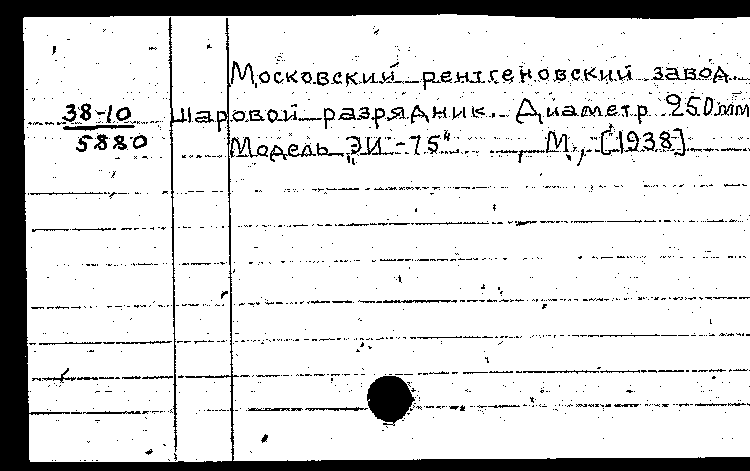 Московский рентгеновский завод.
38-10 Шаровой разрядник. Диаметр 250мм
5880 Модель „ЭИ-75“ , М., [1938]